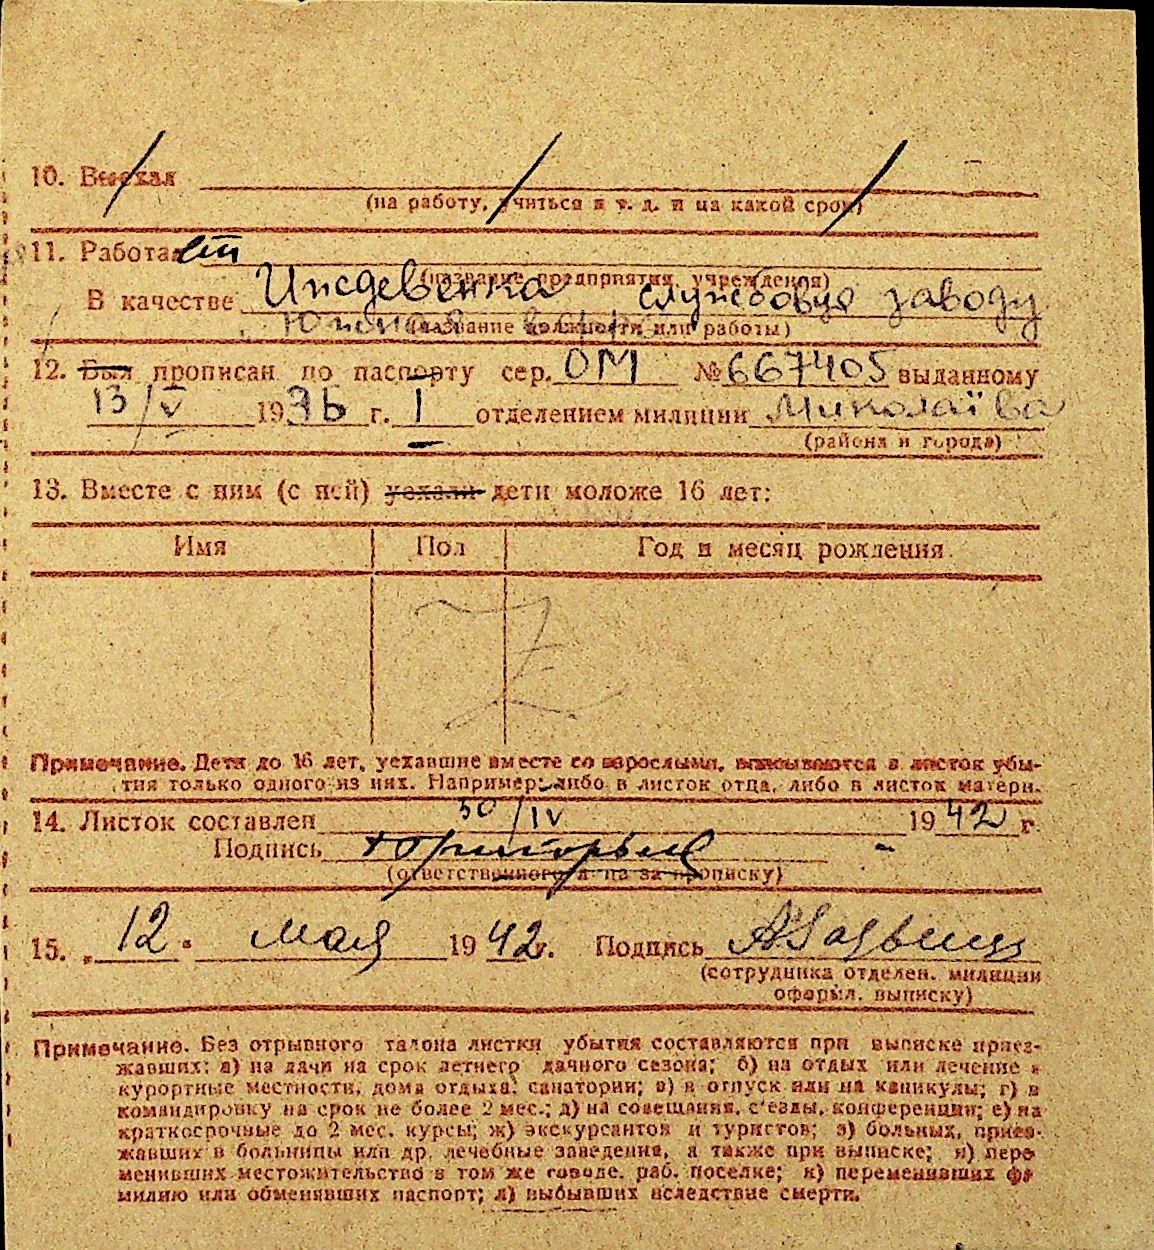 10. Выехал
(на работу, учиться и т. д. и на какой срок)
11. Работает
(название предприятия, учреждения)
В качестве Иждевенка службовця заводу
(название должности или работы)
12. Был прописан по паспорту сер. ОМ № 667405 выданному
13/V 1936 г. I отделением милиции Миколаїва
(района и города)
13. Вместе с ним (с ней) уехали дети моложе 16 лет:
Имя Пол Год и месяц рождения
Z
Примечание. Дети до 16 лет, уехавшие вместе со взрослыми, вписываются в листок убы-
тия только одного из них. Например: либо в листок отца, либо в листок матери.
14. Листок составлен 30/IV 1942 г.
Подпись
(ответственного л-ца за прописку)
15. „12" мая 1942 г. Подпись
(сотрудника отделен. милиции
оформл. выписку)
Примечание. Без отрывного талона листки убытия составляются при выписке приез-
жавших: а) на дачи на срок летнего дачного сезона; б) на отдых или лечение в
курортные местности, дома отдыха, санатории; в) в отпуск или на каникулы; г) в
командировку на срок не более 2 мес.; д) на совещания, с'езды, конференции; е) на
краткосрочные до 2 мес. курсы; ж) экскурсантов и туристов; з) больных, приез-
жавших в больницы или др. лечебные заведения, а также при выписке; и) пере
менивших местожительство в том же городе, раб. поселке; к) переменивших фа
милию или обменявших паспорт; л) выбывших вследствие смерти.